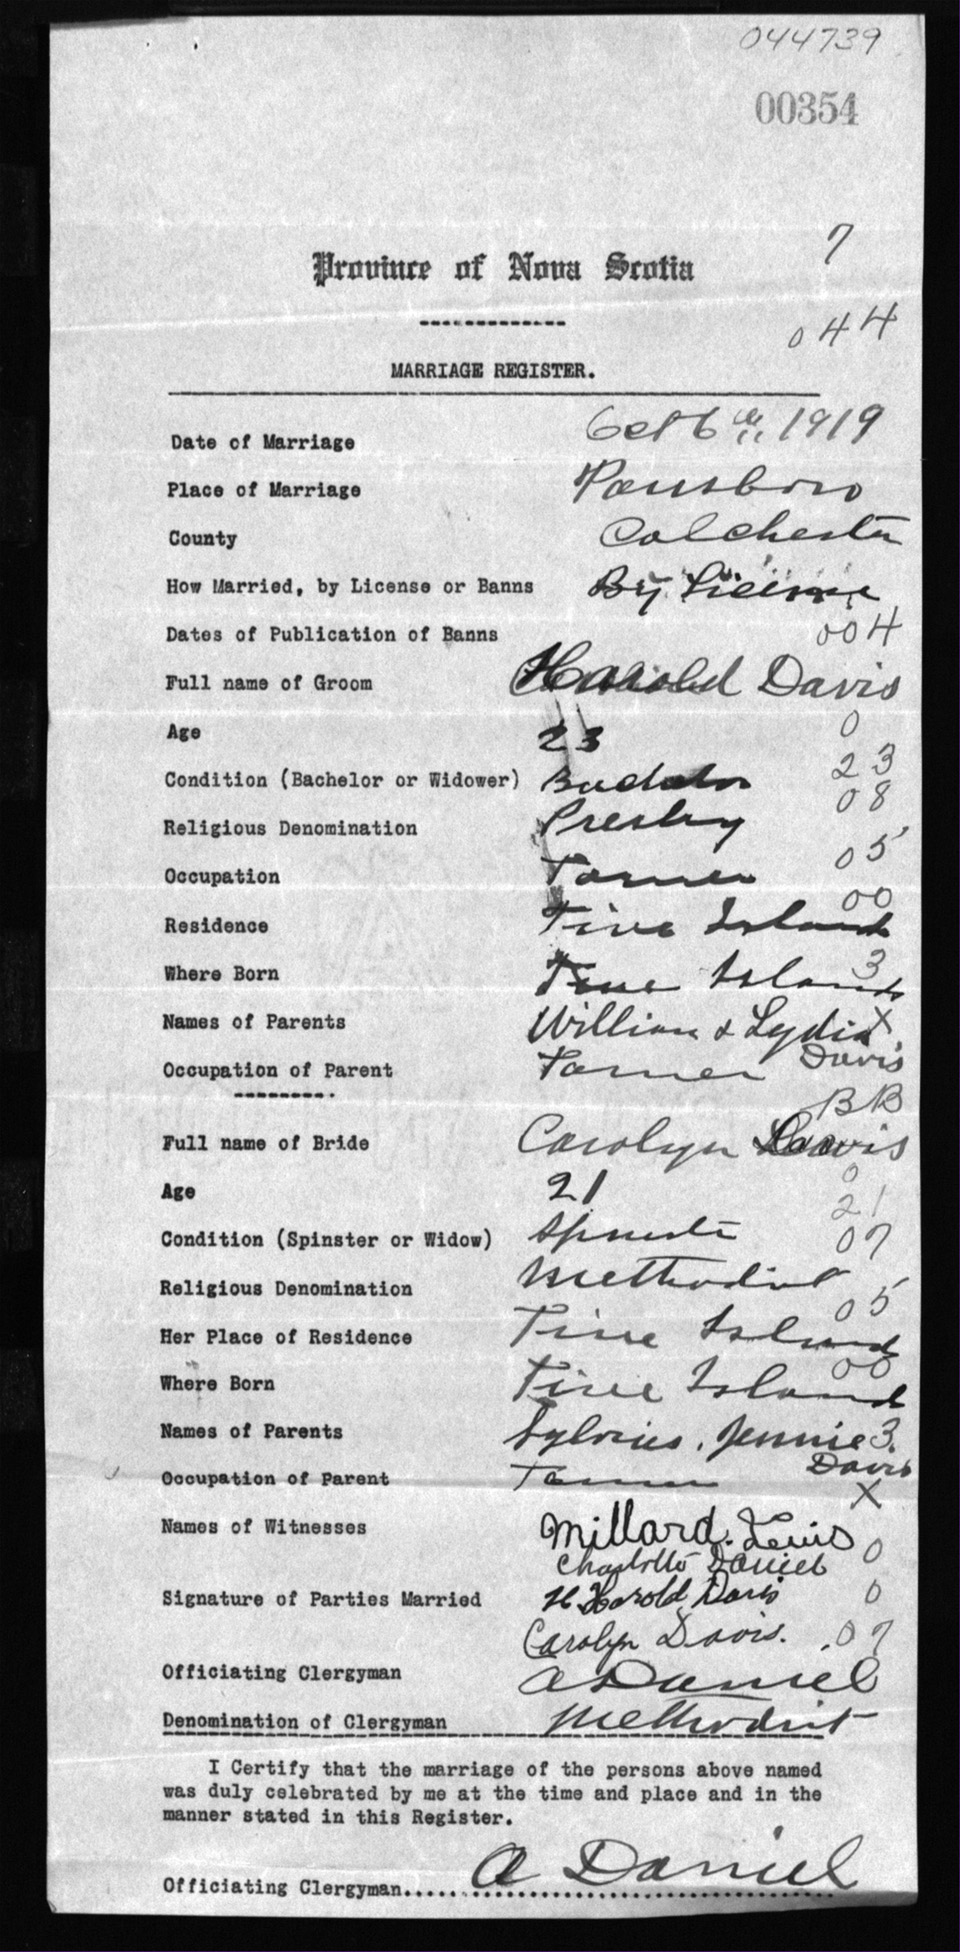 044739
00354
7
Province of Nova Scotia
044
MARRIAGE REGISTER.
Date of Marriage Oct 6th, 1919
Place of Marriage
County Colchester
How Married, by License or Banns By License
Dates of Publication of Banns 004
Full name of Groom Harold Davis
0
Age 23
23
Condition (Bachelor or Widower) Bachelor
08
Religious Denomination Presby
05
Occupation Farmer
00
Residence Five Islands
3
Where Born Five Islands
Names of Parents William & Lydia X
Davis
Occupation of Parent Farmer
BB
Full name of Bride Carolyn Davis
0
Age 21
21
Condition (Spinster or Widow) Spinster
07
Religious Denomination Methodist
05
Her Place of Residence Five Islands
00
Where Born Five Islands
Names of Parents Sylvius, Jennie 3.
Davis
Occupation of Parent Farmer
X
Names of Witnesses Millard Lewis
0
Charlotte Daniel
Signature of Parties Married H Harold Davis
0
Carolyn Davis. .07
Officiating Clergyman A Daniel
Denomination of Clergyman Methodist
I Certify that the marriage of the persons above named
was duly celebrated by me at the time and place and in the
manner stated in this Register.
Officiating Clergyman..... A Daniel